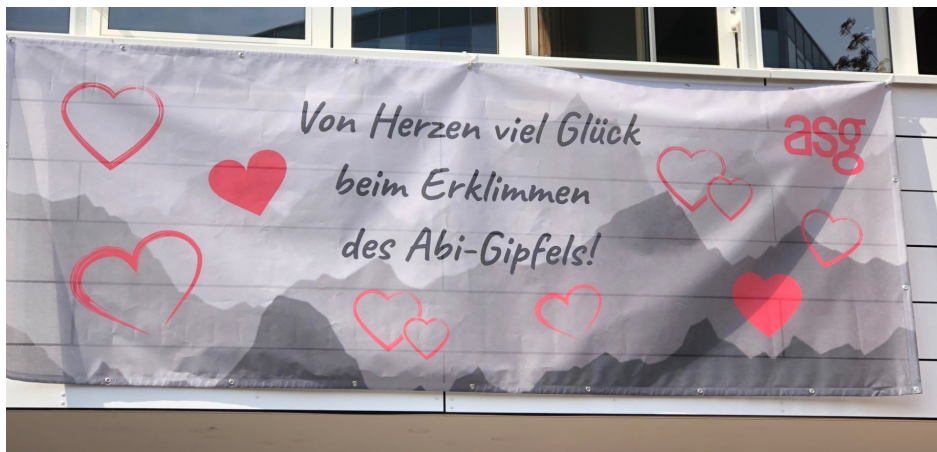 Von Herzen viel Glück
beim Erklimmen
des Abi-Gipfels!
asg